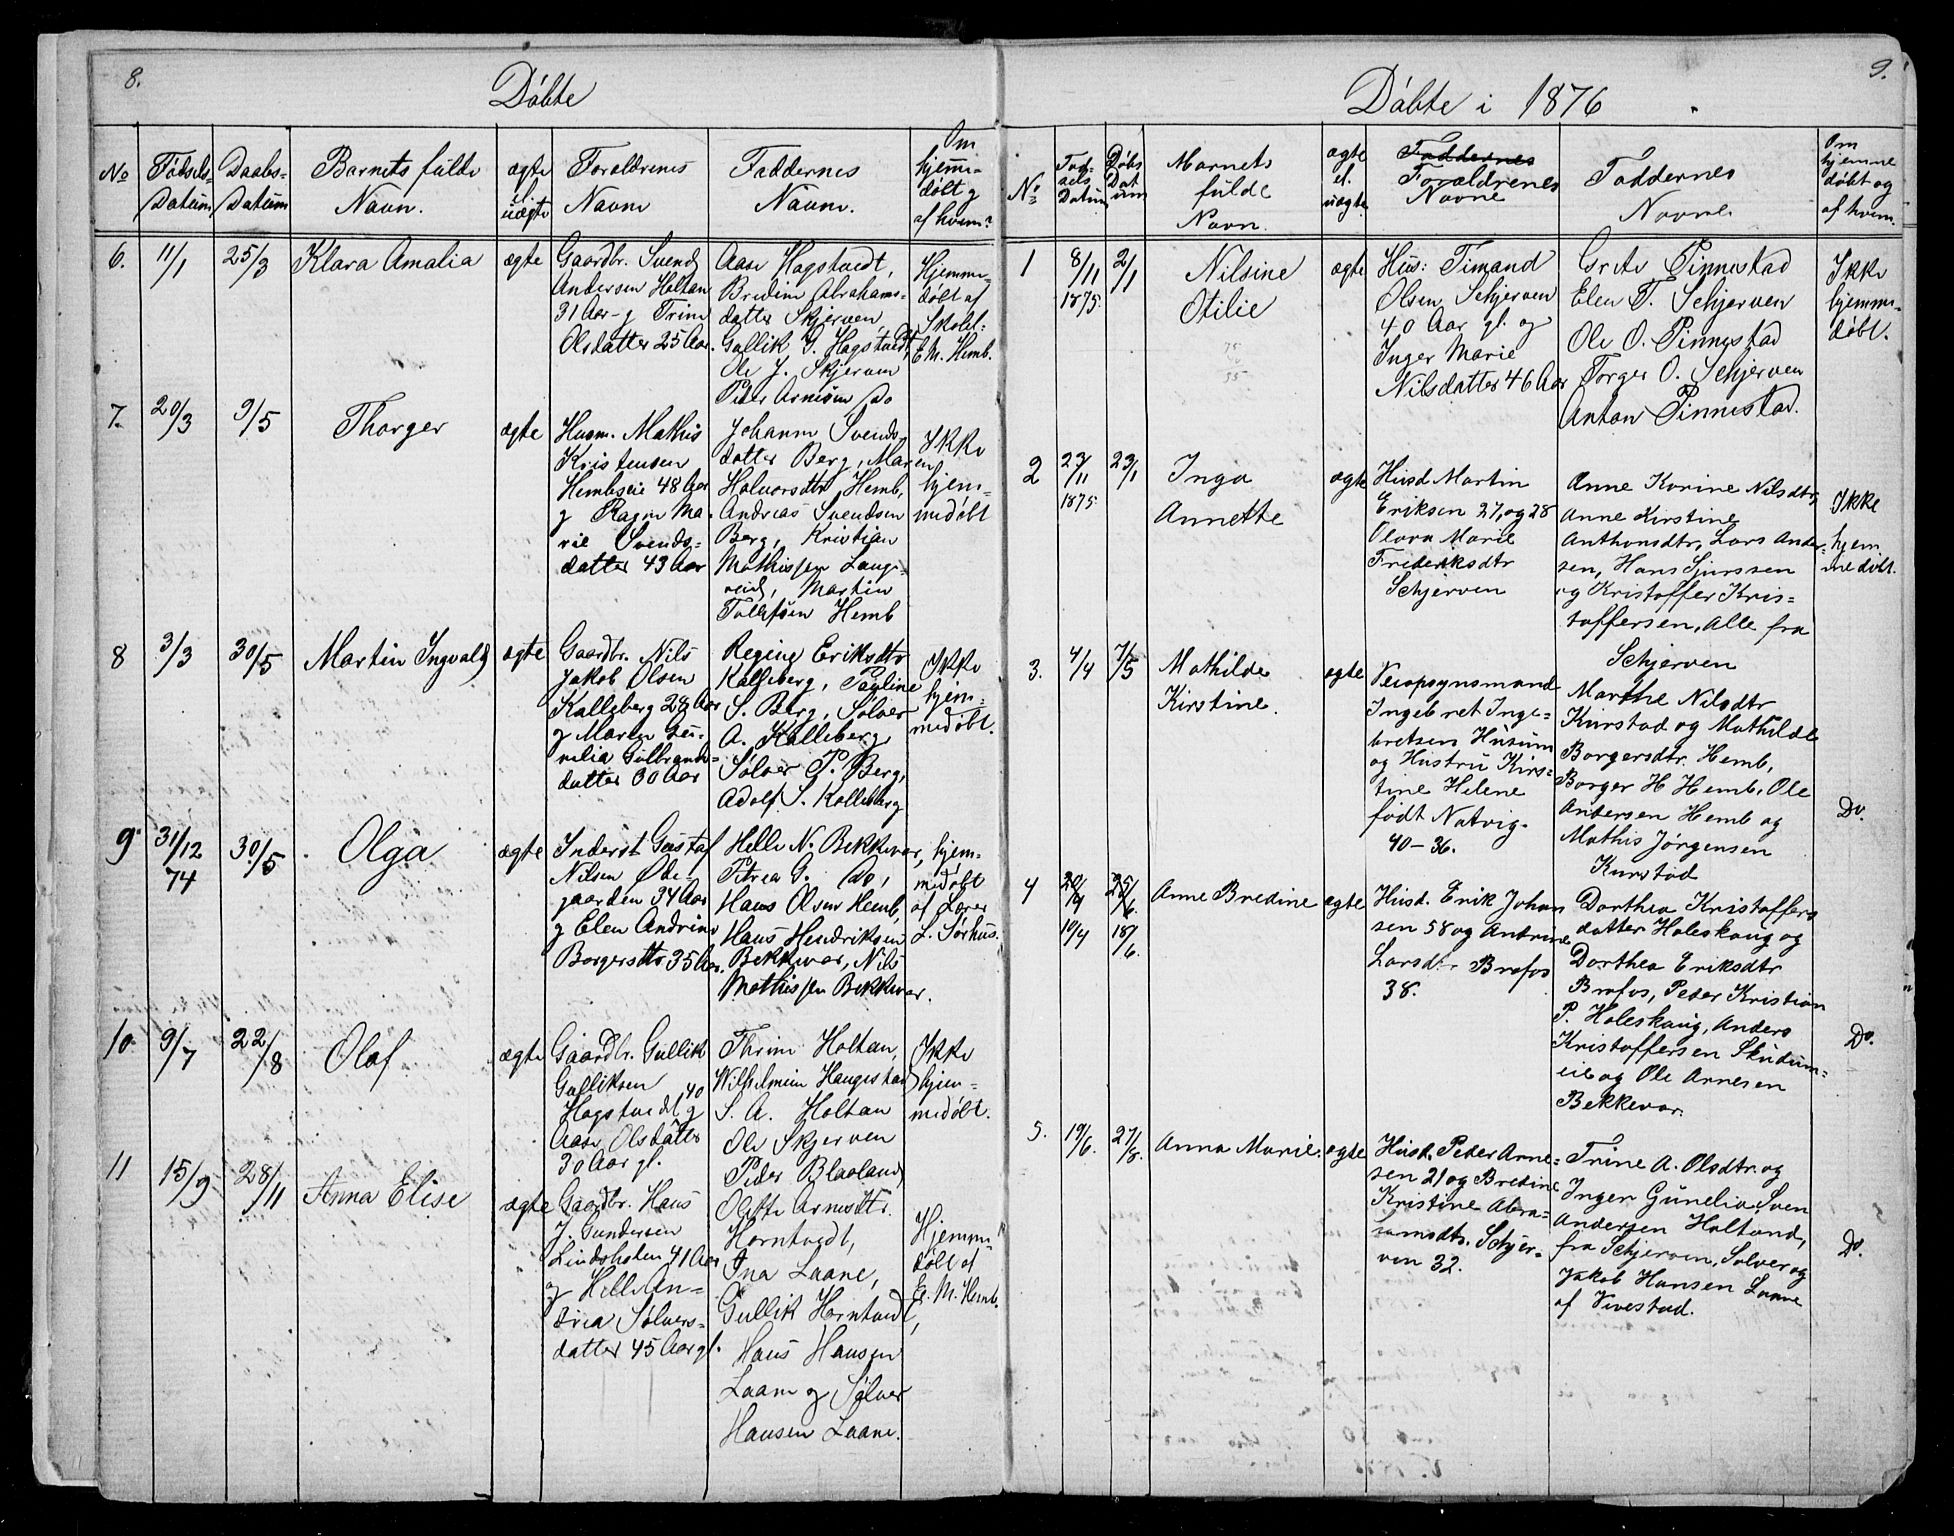 8.
Döbte
No
Födsels-
Datum
Daabs-
Datum
Barnets fulde
Navn.
ægte
el.
uægte
Forældrenes
Navne
Faddernes
Navne.
Om
hjemme-
døbt og
af hvem?
6.
11/1
25/3
Klara Amalia
ægte
Gaardbr. Svend
Andersen Holtan
31 Aar - g Trine
Olsdatter 25 Aar.
Aase Hagstvedt,
Bredine Abrahams-
datter Skjerven,
Gullik G. Hagstvedt,
Ole J. Skjerven
Peder Arnesen Do
Hjemme-
døbt af
Skolel.
E. M. Hemb.
7.
20/3
9/5
Thorger
ægte
Husm. Mathis
Kristensen
Hembseie 48 Aar
g Ragne Ma-
rie Svends-
datter 43 Aar
Johanne Svends
datter Berg, Maren
Halvorsdtr Hemb,
Andreas Svendsen
Berg, Kristian
Mathissen
Martin
Tollefsen Hemb
Ikke
hjem-
medøbt
8
3/3
30/5
Martin Ingvald
ægte
Gaardbr. Nils
Jakob Olsen
Kalleberg 28 Aar
g Maren Gu-
nilia Gulbrands-
datter 30 Aar
Regine Eriksdtr
Kalleberg, Pauline
S. Berg, Sølver
A. Kalleberg
Sølver P. Berg,
Adolf S. Kalleberg
Ikke
hjem-
medøbt.
9.
31/12
74
30/5
Olga
ægte
Inderst Gustaf
Nilsen Øde-
gaarden 34 Aar
g Elen Andrine
Borgersdtr 35 Aar.
Helle N. Bekkevar,
Petrea G. Do,
Hans Olsen Hemb,
Hans Hendriksen
Bekkevar, Nils
Mathissen Bekkevar.
hjem-
medøbt
af Lærer
L. Sørhus.
10.
9/7
22/8
Olaf
ægte
Gaardbr. Gullik
Gulliksen 40
Hagstvedt g
Aase Olsdatter
30 Aar gl.
Thrine Holtan,
Wilhelmine Haugestad
S. A. Holtan
Ole Skjerven
Peder Blaaland
Ikke
hjem-
medøbt.
11
15/9
28/11
Anna Elise
ægte
Gaardbr. Hans
J. Gundersen
Lindsholen 41 Aar
g Helle An-
drea Sølvers-
datter 45 Aar gl.
Olette Arnesdtr.
Horntvedt,
Ina Laane,
Gullik Horntvedt,
Hans Hansen
Laane g Sølver
Hansen Laane.
Hjemme-
døbt af
E. M. Hemb.
9.
Döbte i 1876
No
Fød-
sels
Datum
Døbs
Dat
um
Barnets
fulde
Navn.
ægte
el.
uægte
Faddernes
Forældrenes
Navne
Faddernes
Navne.
Om
hjemme
døbt og
af hvem.
1
8/11
1875.
2/1
Nilsine
Otilie
ægte
Hus: Timand
Olsen Schjerven
40 Aar gl. og
Inger Marie
Nilsdatter 46 Aar
Grete Pinnestad
Elen T. Schjerven
Ole O. Pinnestad
Torger O. Schjerven
Anton Pinnestad.
Ikke
hjemme-
døbt.
2
23/11
1875
23/1
Inga
Annette
ægte
Husd Martin
Eriksen 27, og 28
Olava Marie
Frideriksdtr
Schjerven
Anne Karine Nilsdtr,
Anne Kirstine
Anthonsdtr, Lars Ander-
sen, Hans Sjurssen
og Kristoffer Kris-
toffersen, Alle fra
Schjerven
Ikke
hjem
me døbt.
3.
4/4
7/5
Mathilde
Kirstine.
ægte
Veiopsynsmand
Ingebret Inge-
bretsen Husum
og Hustru Kirs-
tine Helene
født Natvig.
40 - 36.
Marthe Nilsdtr
Kurstad og Mathilde
Borgersdtr. Hemb,
Borger H Hemb, Ole
Andersen Hemb og
Mathis Jørgensen
Kurstad
Do.
4
20/4
10/4
25/6.
18/6.
Anne Bredine
ægte
Husd. Erik Johan
sen 58 og Antrine
Larsd. Brofos
38.
Dorthea Kristoffers
datter Holeskaug og
Dorthea Eriksdtr
Brofos, Peter Kristian
P. Holeskaug, Anders
Kristoffersen Skudum-
eie og Ole Arnesen
Bekkevar.
Do.
5.
19/6.
27/8.
Anna Marie.
ægte
Husd, Peter Arne-
sen 21 og Bredine
Kristine Abra-
hamsdtr. Schjer-
ven 32.
Trine A. Olsdtr. og
Inger Gunelia, Sven
Andersen Holtand,
fra Schjerven, Sølver og
Jakob Hansen Laane
af Vivestad.
Do.